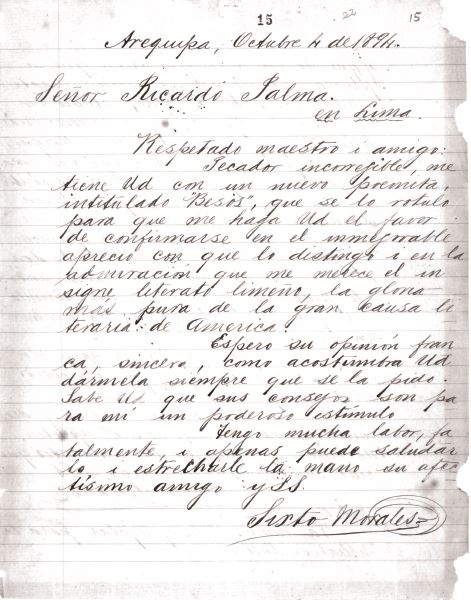 15
22
15
Arequipa, Octubre 4 de 1894.
Señor Ricardo Palma.
en Lima.
Respetado maestro i amigo:
Pecador incorregible, me
tiene Ud con un nuevo poemita,
intitulado "Besos", que se lo rotulo
para que me haga Ud el favor
de confirmarse en el inmejorable
aprecio con que lo distingo i en la
admiración que me merece el in
signe literato limeño, la gloria
más pura de la gran causa li
teraria de America.
Espero su opinión fran
ca, sincera, como acostumbra Ud
dármela siempre que se la pido.
Sabe Ud que sus consejos son pa
ra mí un poderoso estímulo
Tengo mucha labor, fa
talmente, i apenas puedo saludar
lo i estrecharle la mano su afec
tísimo amigo y SS.
Sixto Morales